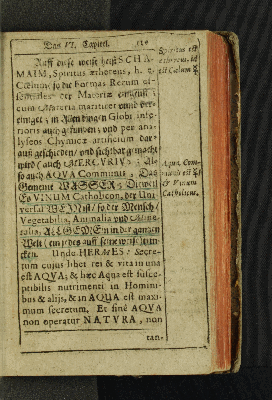 Das VI. Capitel.
Auff diese weise heist SCHA-
MAIM, Spiritus æthereus, h. e.
Cœlum, so die Formas Rerum es-
sentiales der Materiæ
cum Materia maritiret und ver-
einiget; in Allen dingen Globi infe-
rioris auch gefunden; und per ana-
lyseos Chymicæ artificium dar-
auß geschieden, und sichtbar gemacht
wird / auch MERCVRIVS; Al-
so auch AQVA Communis, Das
Gemeine WASSER; Dieweil
Es VINUM Catholicon, der Uni-
versal WEIN ist / so der Mensch /
Vegetabilia, Animalia und Mine-
ralia, ALGEMEin in der gantzen
Welt / ein jedes auff seine weise trin-
cken. Unde HERMES: Secre-
tum cujus libet rei & vita in una
est AQVA; & hæc Aqua est susce-
ptibilis nutrimenti in Homini-
bus & aliis, & in AQUA est maxi-
mum secretum. Et sinè AQVA
non operatur NATVRA, non
tan-
Spiritus est
æthereus, id
est Cœlum
Aqua Com-
munis est
& Vinum
Catholicum.